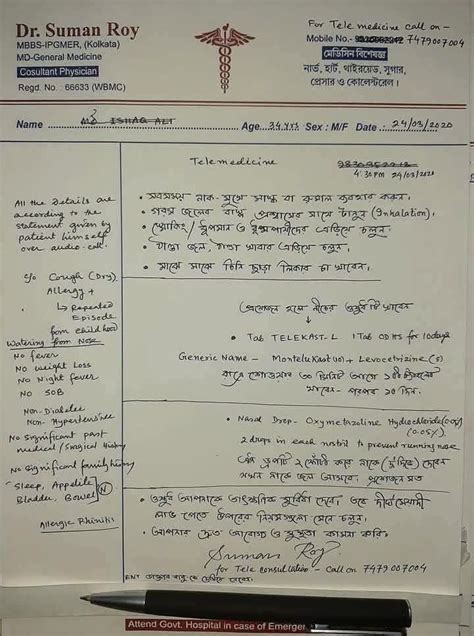 Dr. Suman Roy
MBBS-IPGMER, (Kolkata)
MD-General Medicine
Cosultant Physician
Regd. No. : 66633 (WBMC)
For Tele medicine call on -
Mobile No.- 7479007004
মেডিসিন বিশেষজ্ঞ
নার্ভ, হার্ট, থাইরয়েড, সুগার,
প্রেসার ও কোলেস্টরেল।
Name Md ISHAQ ALI Age 34 yrs Sex : M/F Date : 24/03/2020
Telemedicine
4:30 PM 24/03/2020
All the Details are
according to the
statement given by
patient himself
over audio-call.
c/o Cough (Dry)
Allergy +
↳ Repeated
Episode
from childhood
Watering from Nose
No fever
No weight Loss
No Night fever
No SOB
Non-Diabetic
Non-Hypertensive
No significant past
medical/surgical History
No significant family history
Sleep, Appetite
Bladder, Bowel N
Allergic Rhinitis
• সবসময় নাক-মুখে মাস্ক বা রুমাল ব্যবহার করুন।
• গরম জলের বাষ্প প্রশ্বাসের সাথে টানুন (Inhalation)।
• স্মোকিং/ধূমপান ও ধূমপায়ীদের এড়িয়ে চলুন।
• ঠান্ডা জল, ঠান্ডা খাবার এড়িয়ে চলুন।
• মাঝে মাঝে চিনি ছাড়া লিকার চা খাবেন।
প্রয়োজন হলে নীচের ওষুধটি খাবেন
• Tab TELEKAST-L 1 Tab OD HS for 10 days
Generic Name - Montelukast (10) + Levocetirizine (5)
খাবেন- পরপর ১০ দিন।
• Nasal Drop- Oxymetazoline Hydrochloride (0.05%)
2 drops in each nostril to prevent running nose
এই ড্রপটি ২ ফোঁটা করে নাকে (দু'দিকে) দেবেন
যখন নাকে জল আসবে। প্রয়োজন মত
• ওষুধ আপনাকে তাৎক্ষণিক সুবিধা দেবে, তবে দীর্ঘমেয়াদী
লাভ পেতে উপরের নিয়মগুলো মেনে চলুন।
• আপনার দ্রুত আরোগ্য ও সুস্থতা কামনা করি।
Suman Roy
for Tele consultation - call on 7479007004
Attend Govt. Hospital in case of Emergen